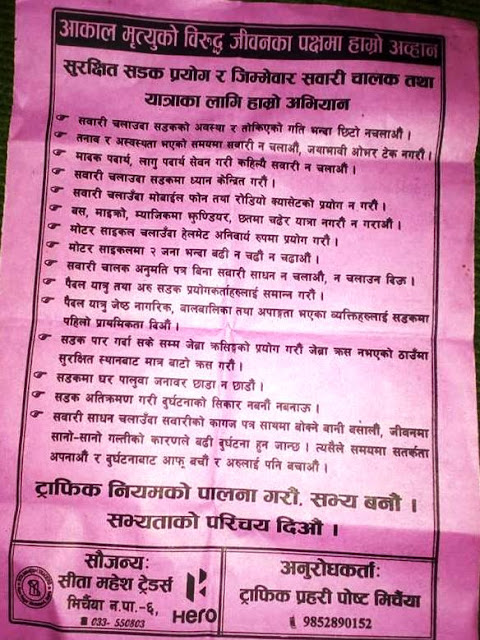 आकाल मृत्युको विरुद्ध जीवनका पक्षमा हाम्रो अव्हान
सुरक्षित सडक प्रयोग र जिम्मेवार सवारी चालक तथा
यात्राका लागि हाम्रो अभियान
सवारी चलाउबा सडकको अवस्था र तोकिएको गति भन्बा छिटो नचलाऔं ।
तनाव र अस्वस्थता भएको समयमा सवारी न चलाऔं, जथाभावी ओभर टेक नगरौं ।
मादक पदार्थ, लागु पदार्थ सेवन गरी कहिल्यै सवारी न चलाऔं ।
सवारी चलाउबा सडकमा ध्यान केन्द्रित गरौं ।
सवारी चलाउँबा मोबाईल फोन तथा रोडियो क्यासेटको प्रयोग न गरौं ।
बस, माइक्रो, म्याजिकमा झुण्डियर, छतमा चढेर यात्रा नगरौं न गराऔं ।
मोटर साइकल चलाउँबा हेलमेट अनिवार्य रुपमा प्रयोग गरौं ।
मोटर साइकलमा २ जना भन्बा बढी न चढौं न चढाऔं ।
सवारी चालक अनुमति पत्र बिना सवारी साधन न चलाऔं, न चलाउन दिऊ ।
पैदल यात्रु तथा अरु सडक प्रयोगकर्ताहरुलाई सम्मान गरौं ।
पैदल यात्रु जेष्ठ नागरिक, बालबालिका तथा अपाङ्गता भएका व्यक्तिहरुलाई सडकमा
पहिलो प्राथमिकता दिऔं ।
सडक पार गर्बा सके सम्म जेब्रा क्रसिङ्गको प्रयोग गरौं जेब्रा क्रस नभएको ठाउँमा
सुरक्षित स्थानबाट मात्र बाटो क्रस गरौं ।
सडकमा घर पालुवा जनावर छाडा न छाडौं ।
सडक अतिक्रमण गरी दुर्घटनाको सिकार नबनौं नबनाऊ ।
सवारी साधन चलाउँबा सवारीको कागज पत्र साथमा बोक्ने बानी बसालौं, जीवनमा
सानो-सानो गल्तीको कारणले बढी दुर्घटना हुन जान्छ । त्यसैले समयमा सतर्कता
अपनाऔं र दुर्घटनाबाट आफू बचौं र अरुलाई पनि बचाऔं ।
ट्राफिक नियमको पालना गरौं. सभ्य बनौं ।
सभ्यताको परिचय दिऔं ।
सौजन्यः
सीता महेश ट्रेडर्स
मिर्चैया न.पा.-६,
033- 550803
Hero
अनुरोधकर्ताः
ट्राफिक प्रहरी पोष्ट मिर्चैया
9852890152